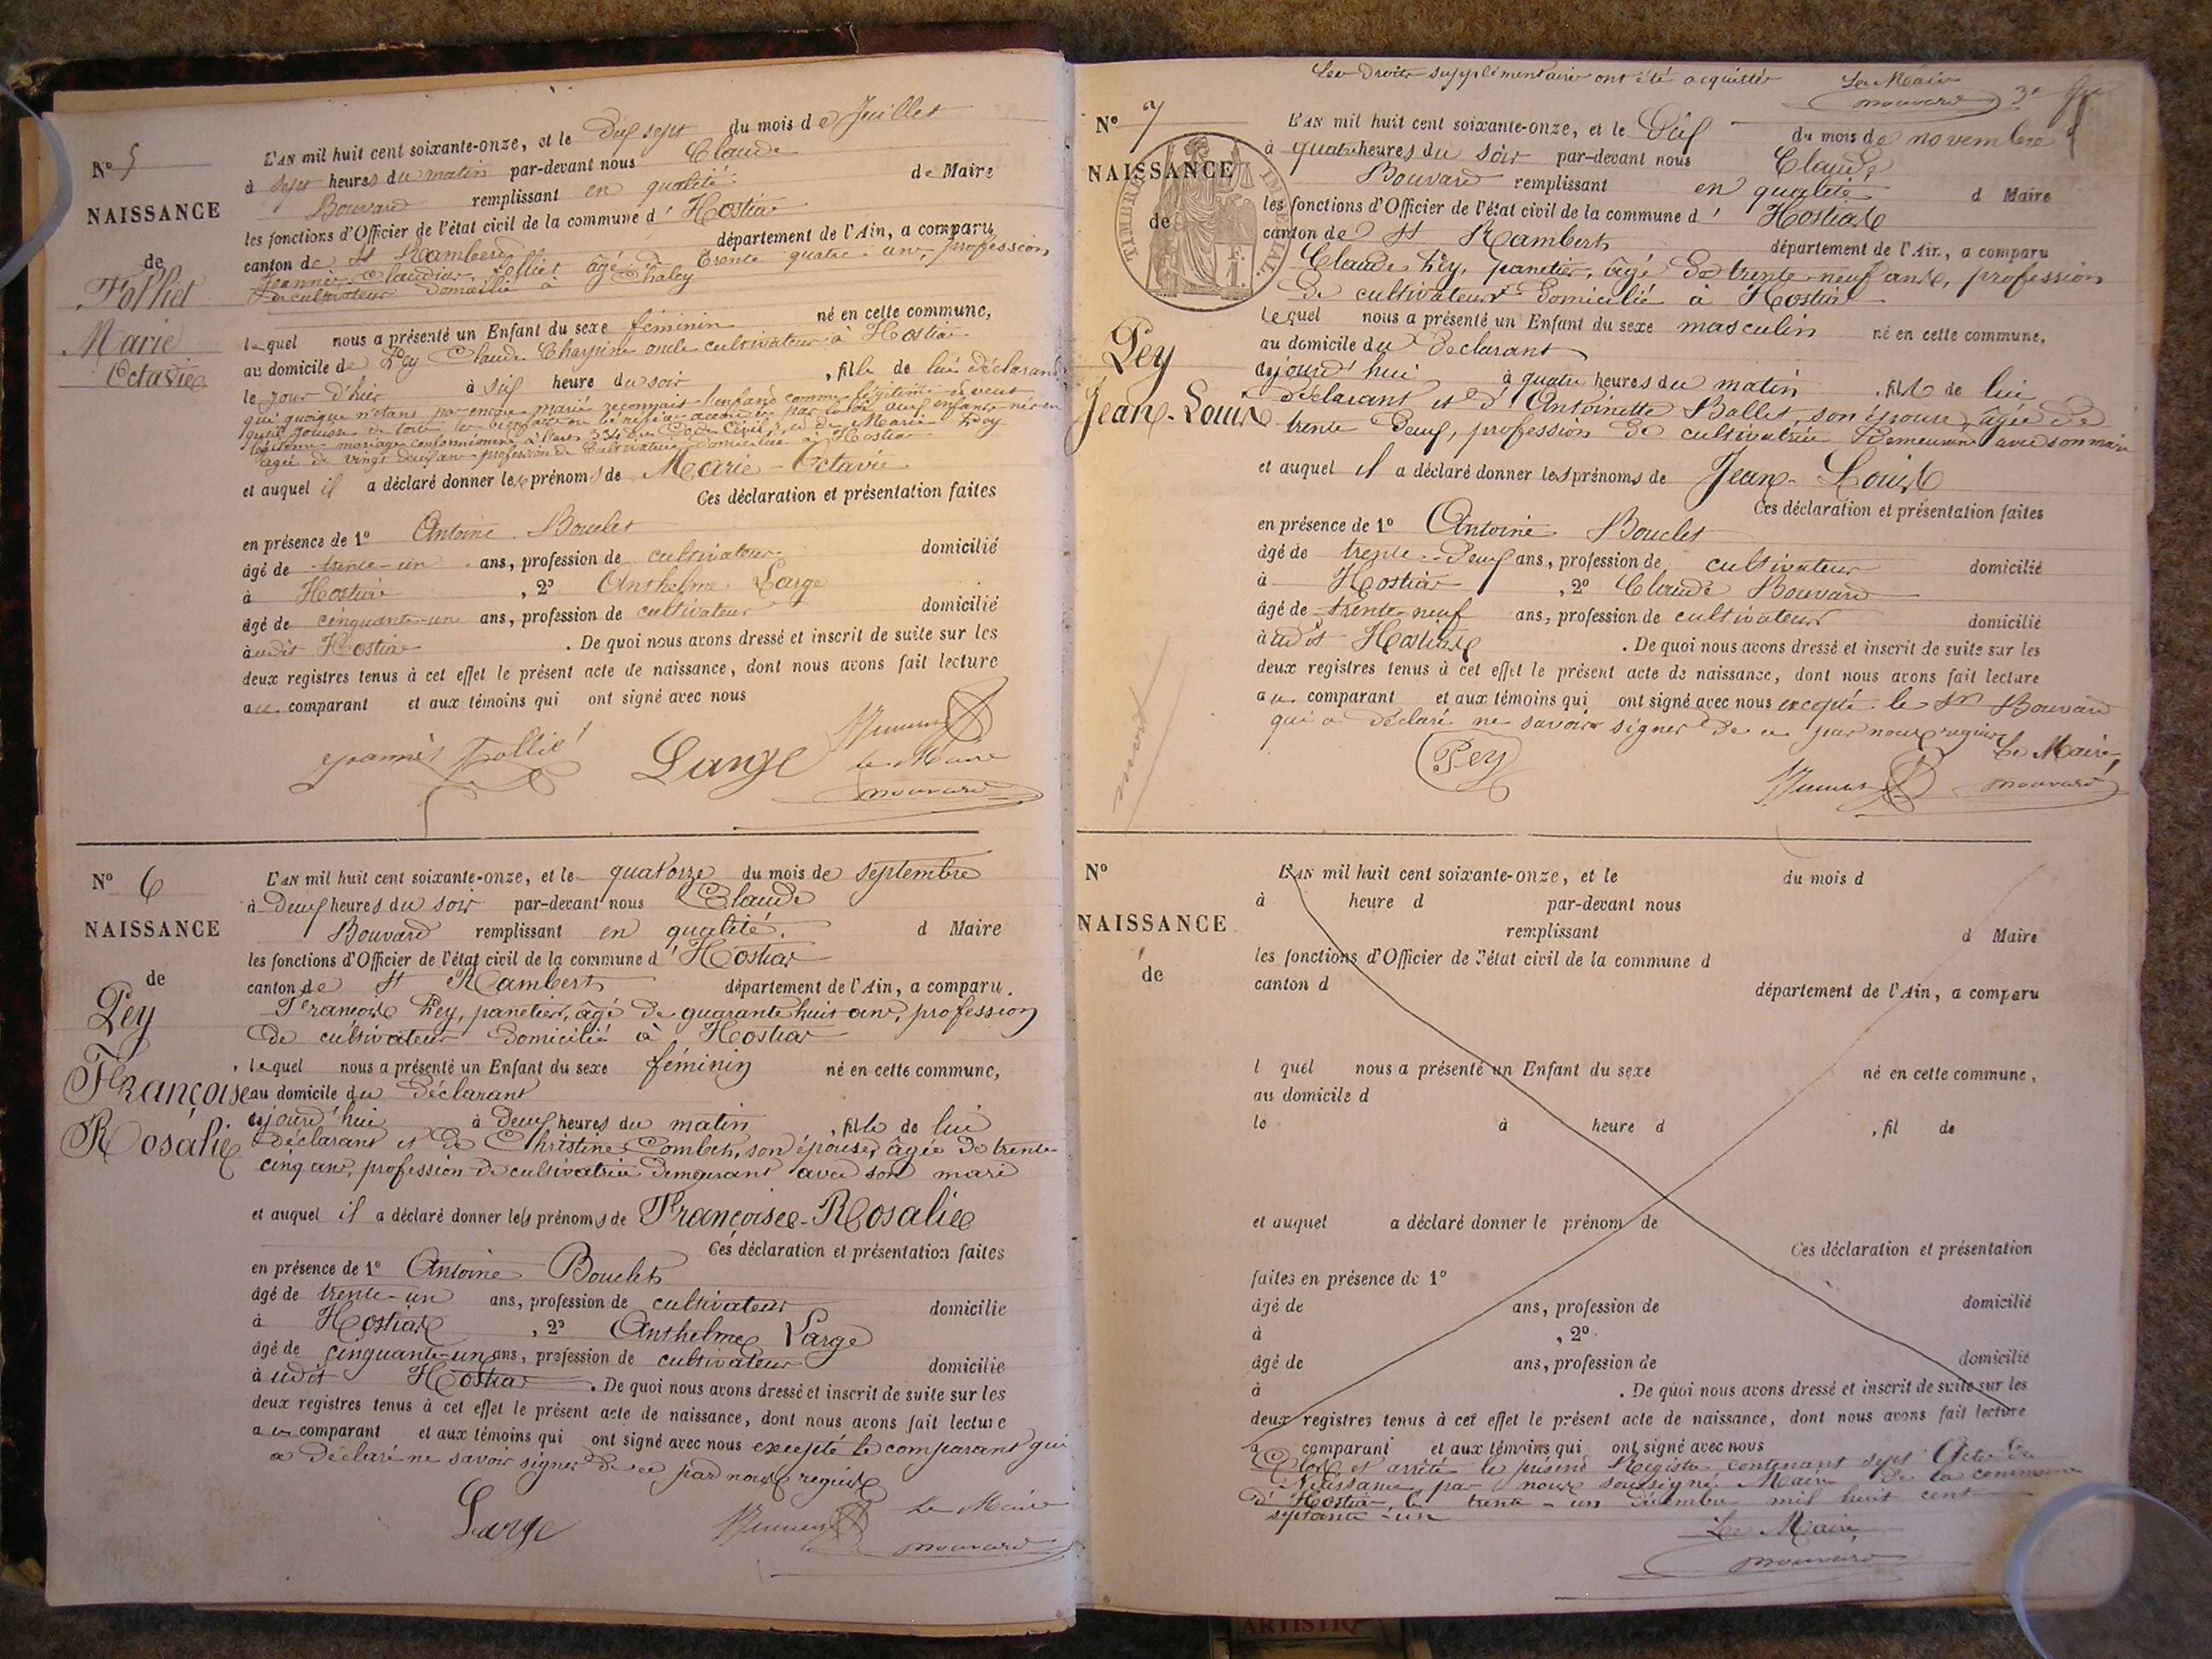 N° 5
NAISSANCE
de
Folliet
Marie
Octavie
L'AN mil huit cent soixante-onze, et le dix sept du mois de Juillet
à sept heures du matin par-devant nous Claude
Bouvard remplissant en qualité de Maire
les fonctions d'Officier de l'état civil de la commune d'Hostiaz
canton de St Rambert département de l'Ain, a comparu
Joannès Claudius Folliet âgé de trente quatre ans, profession
de cultivateur domicilié à Chaley
lequel nous a présenté un Enfant du sexe féminin né en cette commune,
au domicile de Pey Claude Charpine oncle cultivateur à Hostiaz
le jour d'hier à six heure du soir, fille de lui déclarant
qui quoique n'étant pas encore marié reconnait l'enfant comme légitime et veut
qu'il jouisse de tous les accordés par la loi aux enfants nés en
légitime mariage conformément à l'art. 334 du Code Civil, et de Marie Pey
âgée de vingt deux ans profession de cultivatrice domiciliée à Hostiaz
et auquel il a déclaré donner les prénoms de Marie-Octavie
Ces déclaration et présentation faites
en présence de 1° Antoine Bouclet
âgé de trente-un ans, profession de cultivateur domicilié
à Hostiaz, 2° Anthelme Large
âgé de cinquante-un ans, profession de cultivateur domicilié
à udit Hostiaz. De quoi nous avons dressé et inscrit de suite sur les
deux registres tenus à cet effet le présent acte de naissance, dont nous avons fait lecture
au comparant et aux témoins qui ont signé avec nous
Joannès Folliet Large
Le Maire
Bouvard
N° 6
NAISSANCE
de
Pey
Françoise
Rosalie
L'AN mil huit cent soixante-onze, et le quatorze du mois de septembre
à deux heures du soir par-devant nous Claude
Bouvard remplissant en qualité d Maire
les fonctions d'Officier de l'état civil de la commune d'Hostiaz
canton de St Rambert département de l'Ain, a comparu
François Pey, panetier, âgé de quarante huit ans, profession
de cultivateur domicilié à Hostiaz
lequel nous a présenté un Enfant du sexe féminin né en cette commune,
au domicile du déclarant
cejourd'hui à deux heures du matin, fille de lui
déclarant et de Christine Combet, son épouse, âgée de trente-
cinq ans, profession de cultivatrice demeurant avec son mari
et auquel il a déclaré donner les prénoms de Françoise-Rosalie
Ces déclaration et présentation faites
en présence de 1° Antoine Bouclet
âgé de trente-un ans, profession de cultivateur domicilié
à Hostiaz, 2° Anthelme Large
âgé de cinquante-un ans, profession de cultivateur domicilié
à udit Hostiaz. De quoi nous avons dressé et inscrit de suite sur les
deux registres tenus à cet effet le présent acte de naissance, dont nous avons fait lecture
au comparant et aux témoins qui ont signé avec nous excepté le comparant qui
a déclaré ne savoir signer de ce par nous requis
Large Le Maire
Bouvard
Les Droits supplémentaires ont été acquittés Le Maire
Bouvard 3e
N° 7
NAISSANCE
de
TIMBRE IMPERIAL
Pey
Jean-Louis
mort
L'AN mil huit cent soixante-onze, et le dix du mois de novembre
à quatre heures du soir par-devant nous Claude
Bouvard remplissant en qualité d Maire
les fonctions d'Officier de l'état civil de la commune d'Hostiaz
canton de St Rambert département de l'Ain, a comparu
Claude Pey, panetier, âgé de trente-neuf ans, profession
de cultivateur domicilié à Hostiaz
lequel nous a présenté un Enfant du sexe masculin né en cette commune,
au domicile du déclarant
cejourd'hui à quatre heures du matin, fils de lui
déclarant et d'Antoinette Ballet, son épouse, âgée de
trente deux, profession de cultivatrice demeurant avec son mari
et auquel il a déclaré donner les prénoms de Jean-Louis
Ces déclaration et présentation faites
en présence de 1° Antoine Bouclet
âgé de trente-deux ans, profession de cultivateur domicilié
à Hostiaz, 2° Claude Bouvard
âgé de trente-neuf ans, profession de cultivateur domicilié
à udit Hostiaz. De quoi nous avons dressé et inscrit de suite sur les
deux registres tenus à cet effet le présent acte de naissance, dont nous avons fait lecture
au comparant et aux témoins qui ont signé avec nous excepté le Sr Bouvard
qui a déclaré ne savoir signer de ce par nous requis
Pey Le Maire,
Bouvard
N°
NAISSANCE
de
L'AN mil huit cent soixante-onze, et le du mois d
à heure d par-devant nous
remplissant d Maire
les fonctions d'Officier de l'état civil de la commune d
canton d département de l'Ain, a comparu
l quel nous a présenté un Enfant du sexe né en cette commune,
au domicile d
le à heure d, fil de
et auquel a déclaré donner le prénom de
Ces déclaration et présentation
faites en présence de 1°
âgé de ans, profession de domicilié
à, 2°
âgé de ans, profession de domicilié
à. De quoi nous avons dressé et inscrit de suite sur les
deux registres tenus à cet effet le présent acte de naissance, dont nous avons fait lecture
a comparant et aux témoins qui ont signé avec nous
Clos et arrêté le présent Registre contenant sept Actes de
Naissance, par nous soussigné Maire de la commune
d'Hostiaz, le trente-un décembre mil huit cent
septante-un
Le Maire
Bouvard
ARTISTIQ